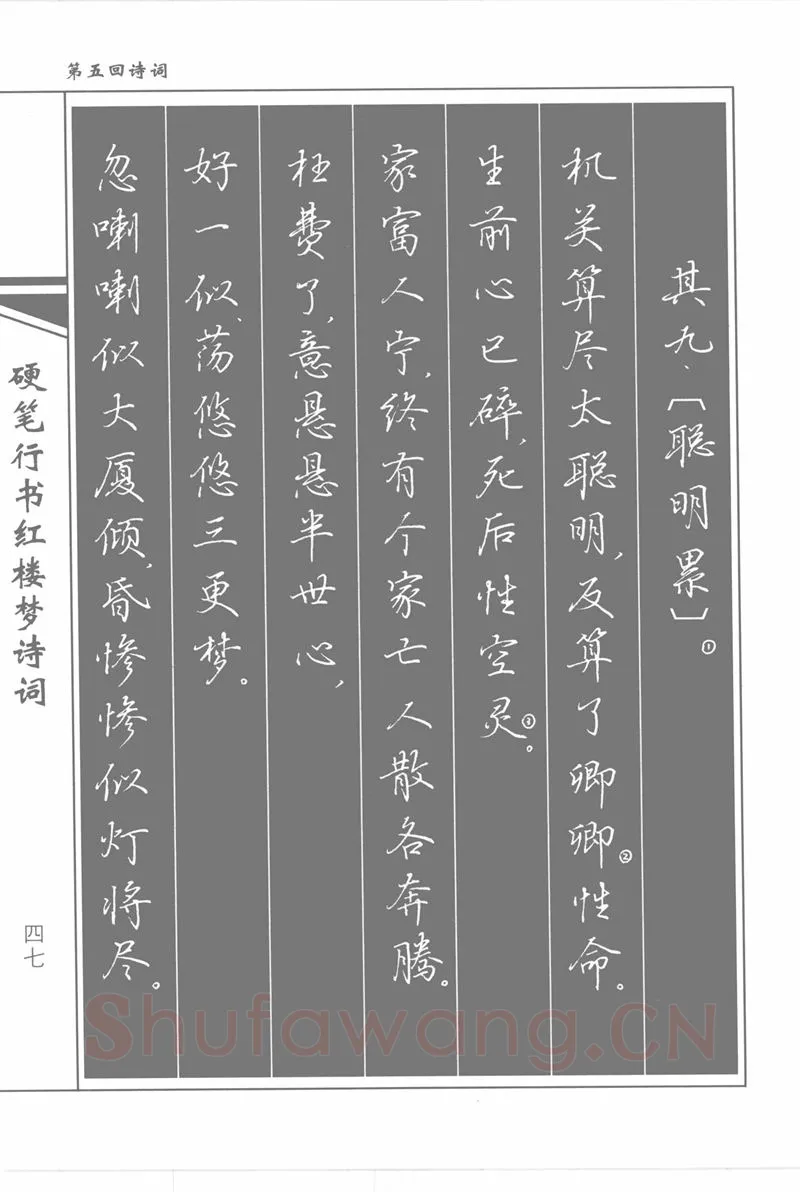 第五回诗词
其九、〔聪明累〕①
机关算尽太聪明,反算了卿卿②性命。
生前心已碎,死后性空灵③。
家富人宁,终有个家亡人散各奔腾。
枉费了,意悬悬半世心,
好一似、荡悠悠三更梦。
忽喇喇似大厦倾,昏惨惨似灯将尽。
硬笔行书红楼梦诗词
四七
Shufawang.CN